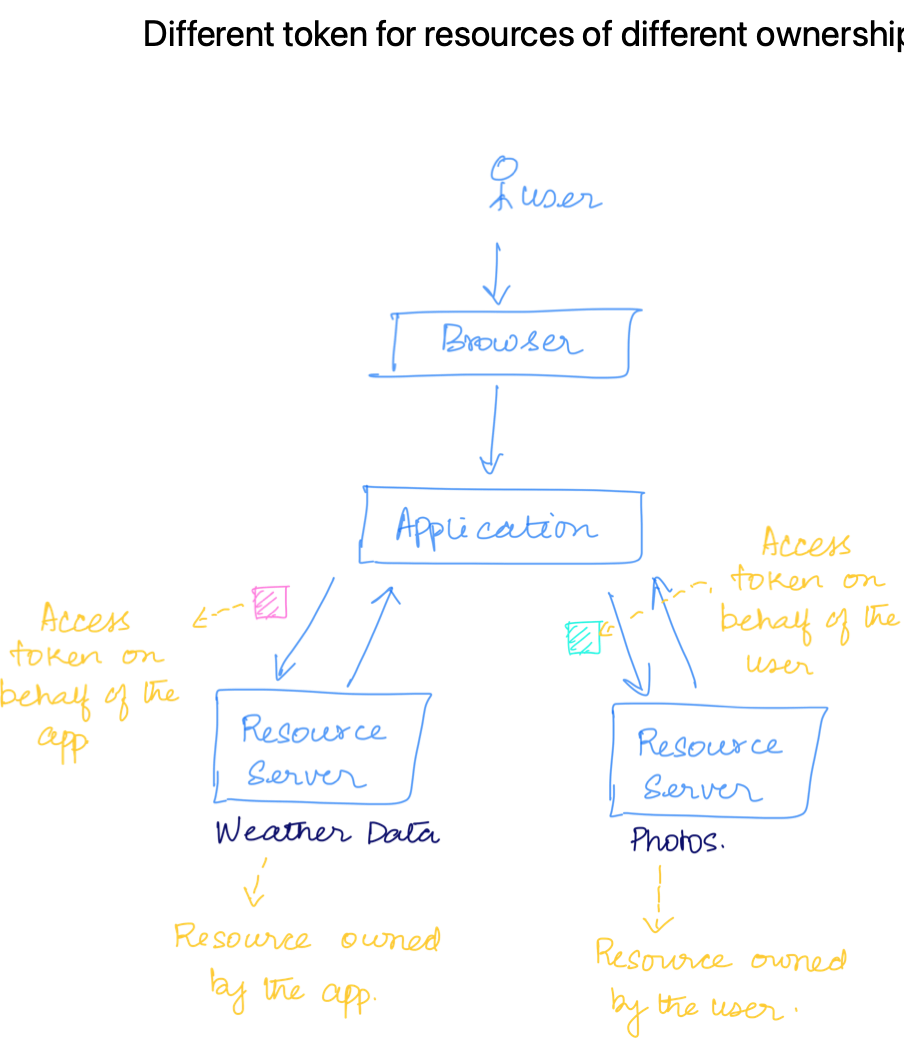 Different token for resources of different ownership
user
Browser
Application
Access
token on
behalf of the
app
Access
token on
behalf of the
user
Resource
Server
Weather Data
Resource
Server
Photos.
Resource owned
by the app.
Resource owned
by the user.